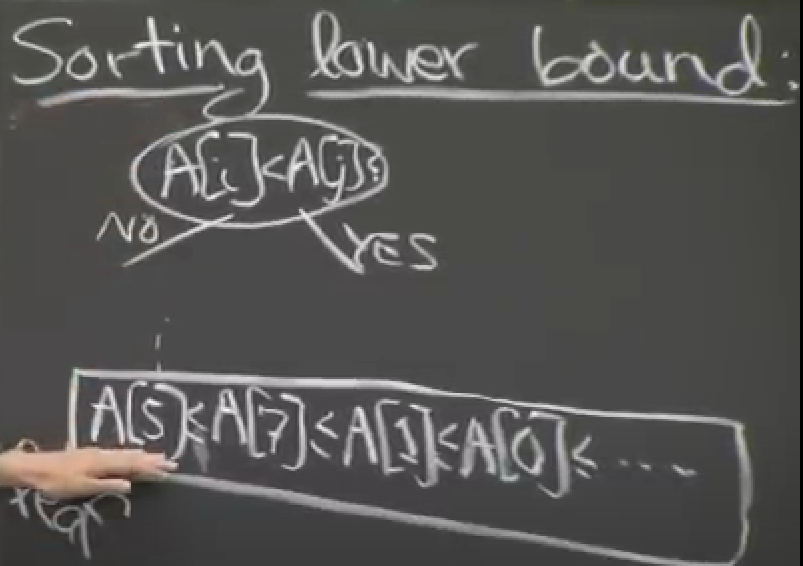 Sorting lower bound:
A[i]<A[j]?
NO YES
A[5]≤A[7]≤A[1]≤A[0]≤...